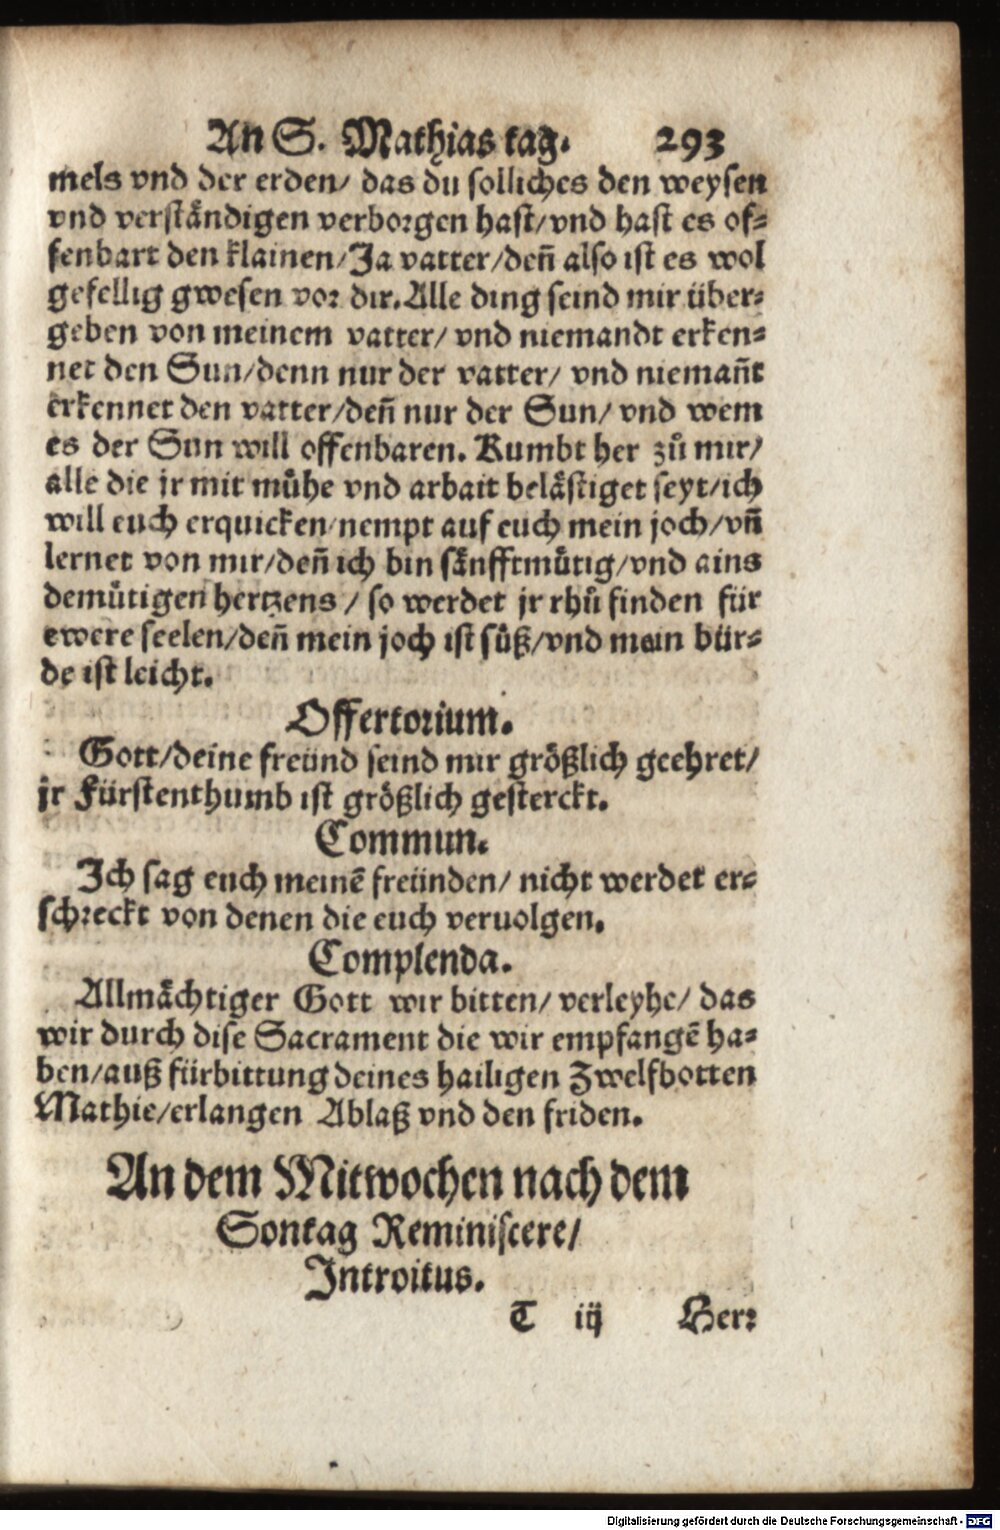 An S. Mathias tag. 293
mels vnd der erden/ das du solliches den weysen
vnd verståndigen verborgen hast/vnd hast es of-
fenbart den klainen/Ja vatter/deñ also ist es wol
gefellig gwesen vor dir.Alle ding seind mir über-
geben von meinem vatter/ vnd niemandt erken-
net den Sun/denn nur der vatter/ vnd niemañt
erkennet den vatter/deñ nur der Sun/ vnd wem
es der Sun will offenbaren. Kumbt her zů mir/
alle die jr mit můhe vnd arbait belåstiget seyt/ich
will euch erquicken/nempt auf euch mein joch/vñ
lernet von mir/deñ ich bin sånfftmůtig/vnd ains
demůtigen hertzens / so werdet jr rhů finden für
ewere seelen/deñ mein joch ist sůß/vnd mein bür-
de ist leicht.
Offertorium.
Gott/deine freünd seind mir größlich geehret/
jr Fürstenthumb ist größlich gesterckt.
Commun.
Ich sag euch meinē freünden/ nicht werdet er-
schreckt von denen die euch veruolgen.
Complenda.
Allmåchtiger Gott wir bitten/ verleyhe/ das
wir durch dise Sacrament die wir empfangē ha-
ben/auß fürbittung deines hailigen Zwelfbotten
Mathie/erlangen Ablaß vnd den friden.
An dem Mitwochen nach dem
Sontag Reminiscere/
Introitus.
T iij Herr
Digitalisierung gefördert durch die Deutsche Forschungsgemeinschaft - DFG